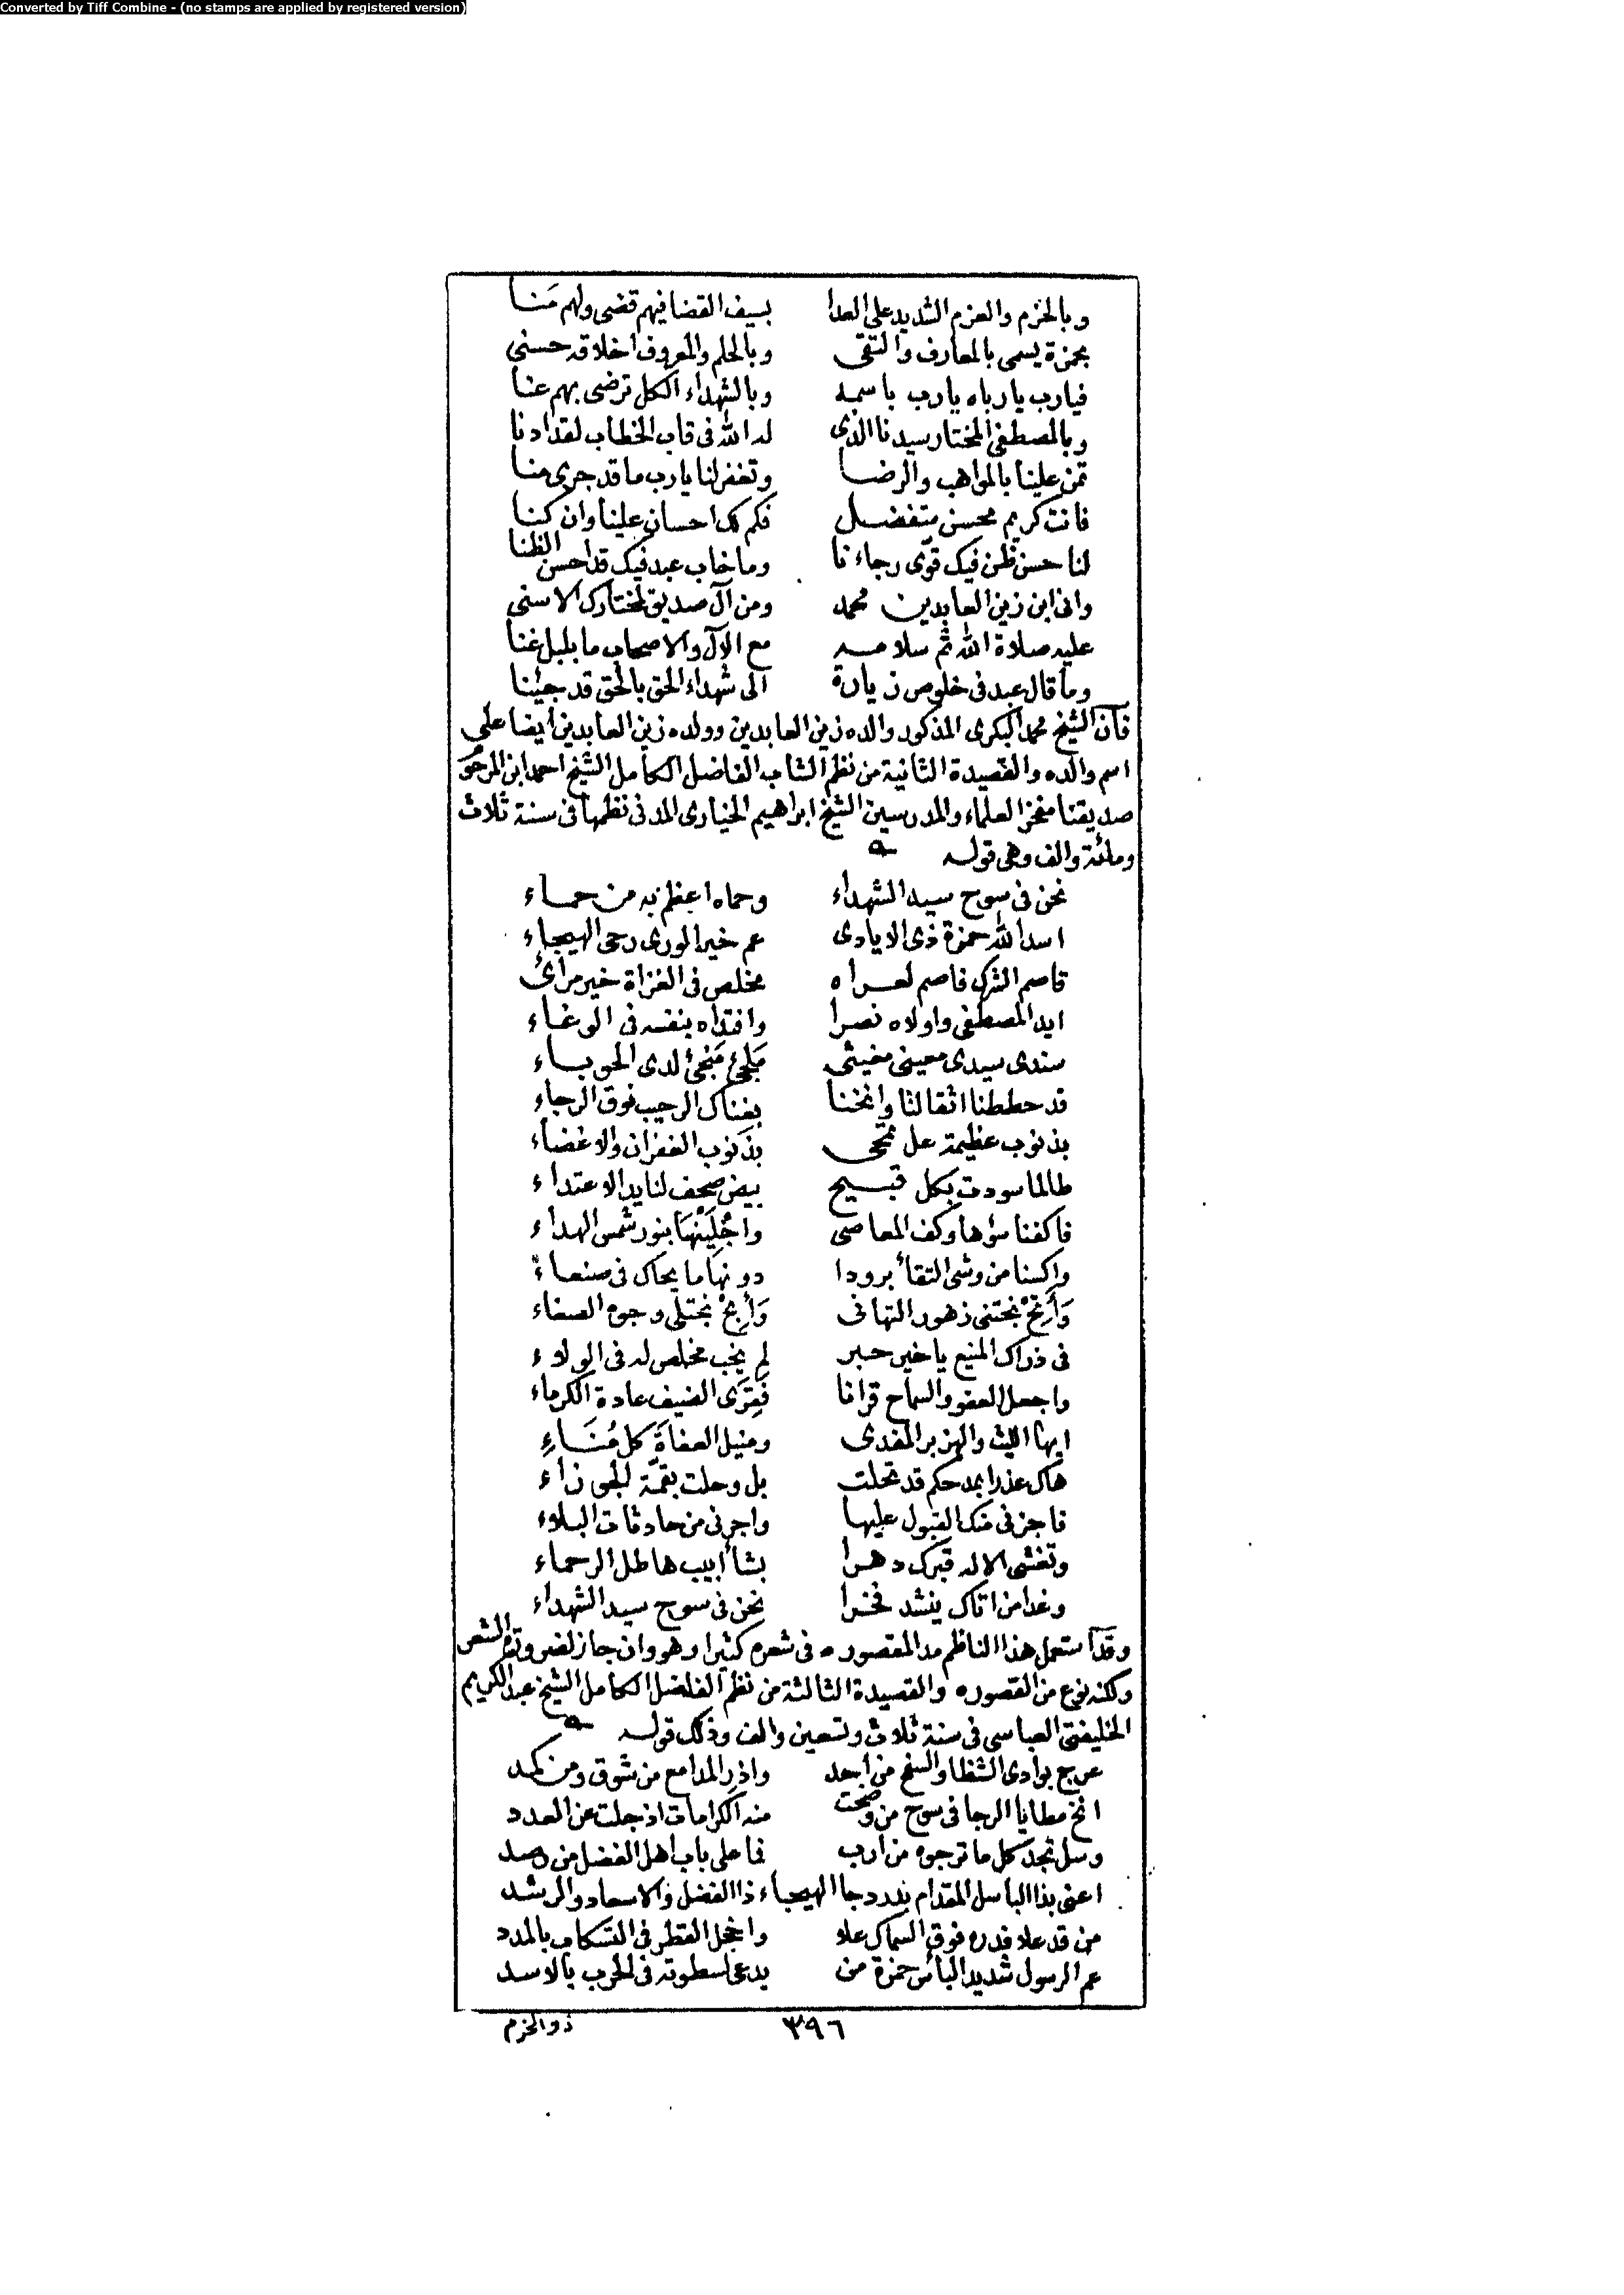 Converted by Tiff Combine - (no stamps are applied by registered version)
وبالحزم والعزم الشديد على العدا بسيف القضا فيهم قضى ولهم مَنا
بحمزة يسمى بالمعارف والتقى وبالحلم والمعروف اخلاقه حسنى
فيارب يارباه يارب باسمه وبالشهداء الكل ترضى بهم عنا
وبالمصطفى المختار سيدنا الذى له الله فى قاب الخطاب لقد ادنا
تمن علينا بالمواهب والرضا وتغفر لنا يارب ما قد جرى منا
فانت كريم محسن متفضل فكم لك احسان علينا وان كنا
لنا حسن ظن فيك قوّى رجاءنا وما خاب عبد فيك قد احسن الظنا
وانى ابن زين العابدين محمد ومن آل صديق لمختارك الاسنى
عليه صلاة الله ثم سلامه مع الآل والاصحاب ما بلبل غنا
وما قال عبد فى خلوص زيارة الى شهداء الحق بالحق قد جئنا
فان الشيخ محمد البكرى المذكور والده زين العابدين وولده زين العابدين أيضا على
اسم والده والقصيدة الثانية من نظم الشاب الفاضل الكامل الشيخ احمد ابن المرحوم
صديقنا مفخر العلماء والمدرسين الشيخ ابراهيم الخيارى المدنى نظمها فى سنة ثلاث
ومائة والف وهى قوله
نحن فى سوح سيد الشهداء وحماه اعظم به من حماء
اسد الله حمزة ذى الايادى عم خير الورى رحى الهيجاء
قاصم الشرك فاصم لعراه مخلص فى الغزاة خير مرائ
ايد المصطفى واولاه نصرا وافتداه بنفسه فى الوغاء
سندى سيدى معينى مغيثى ملجئ منجئ لدى الحوباء
قد حططنا اثقالنا وانخنا بفناك الرحيب فوق الرجاء
بذنوب عظيمة عل تمحى بذنوب الغفران والاغضاء
طالما سودت بكل قبيح بيض صحف لنا يد الاعتداء
فاكفنا سؤها وكف المعاصى واجْلِيَنْهَا بنور شمس الهداء
واكسنا من وشى التقاء برودا دونها ما يحاك فى صنعاء
وَأَرِخْ نجتنى زهور التهانى وَأَرِحْ نجتلى وجوه الصفاء
فى ذراك المنيع يا خير حبر لم يخب مخلص له فى الولاء
واجعل العفو والسماح قرانا فقِرَى الضيف عادة الكرماء
ايها الليث والهزبر المفدى ومنيل العفاة كل مُنَاءِ
هاك عذرا بمدحكم قد تحلت بل وحلت بقمّة الجوزاء
فاجزنى منك القبول عليها واجرنى من حادثات البلاء
وتغشى الاله قبرك دهرا بشأابيب هاطل الرحماء
وغدا من اتاك ينشد فخرا نحن فى سوح سيد الشهداء
وقد استعمل هذا الناظم مد المقصوره فى شعره كثيرا وهو وان جاز لضرورة الشعر
ولكنه نوع من القصوره والقصيدة الثالثة من نظم الفاضل الكامل الشيخ عبد الكريم
الخليفتى العباسى فى سنة ثلاث وتسعين والف وذلك قوله
عرج بوادى الشظا والسفح من أحد واذر المدامع من شوق ومن كمد
انخ مطايا الرجا فى سوح من وضحت منه الكرامات اذ جلت عن العدد
وسل تجد كل ما ترجوه من ارب فما على باب اهل الفضل من وصد
اعنى بذا الباسل المقدام بدر دجا الهيجاء ذا الفضل والاسعاد والرشد
من قد علا قدره فوق السماك علا واخجل القطر فى التسكاب بالمدد
عم الرسول شديد البأس حمزة من يدعى لسطوته فى الحرب بالاسد
٣٩٦
ذو الحزم